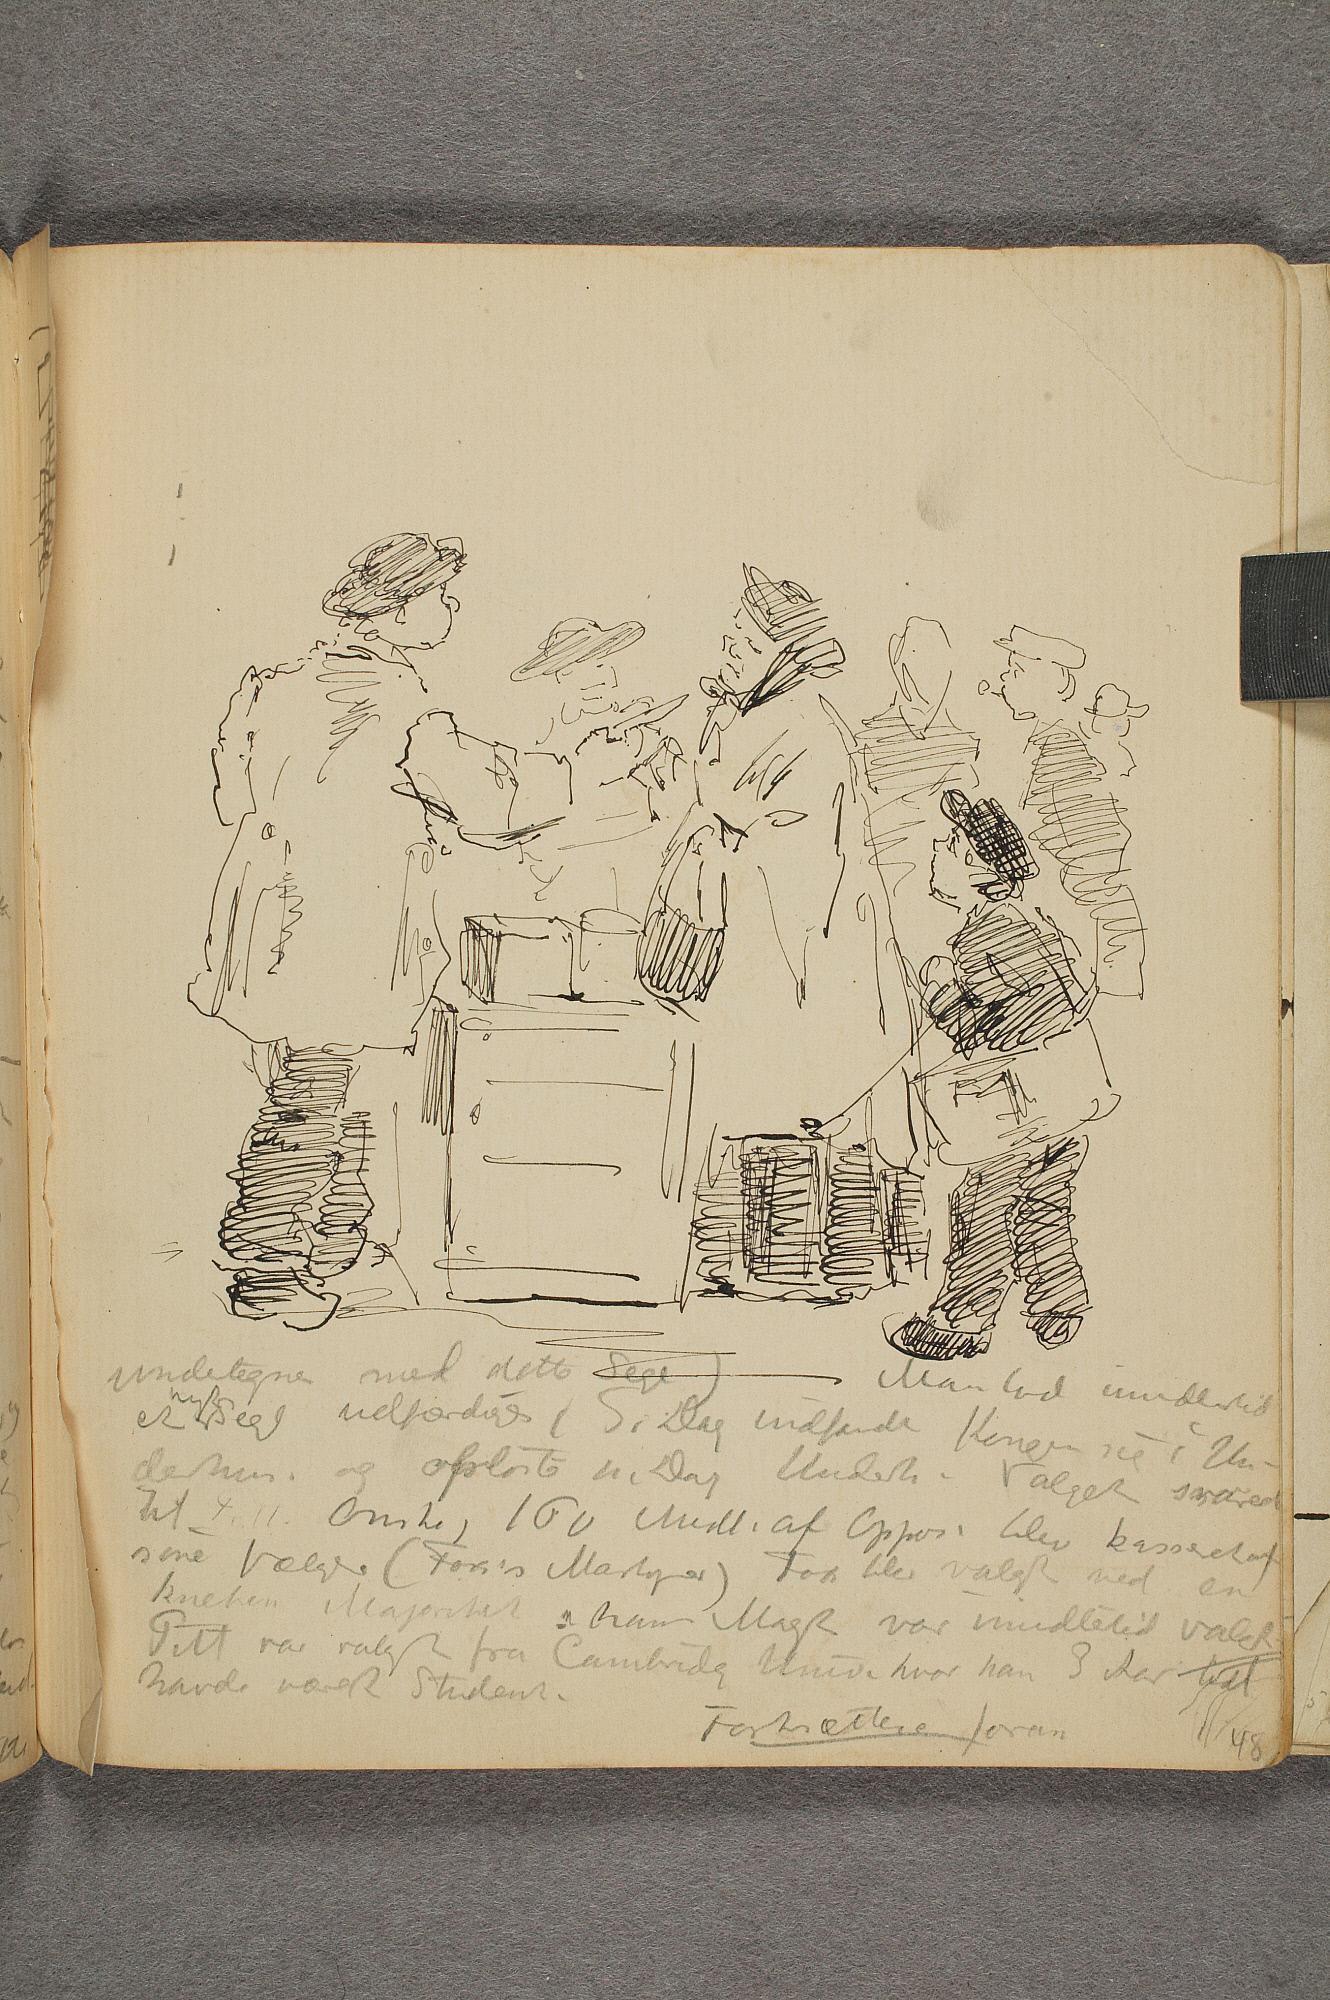 undetegner med dette Segl) Man lod imidlertid
et nyt Segl udfærdige ( S. Dag indfandt Kongen sig i Un-
derhus. og opløste n. Dag Underh. Valget svarede
til Ønske, 160 Medl. af Oppos. blev kasseret af
sine Vælgere (Fox's Martyrer) Fox blev valgt med en
kneben Majoritet hans Magt var imidletid
Pitt var valgt fra Cambridg Univ. hvor han 3 Aar
havde været Student.
Fortsættese foran
48